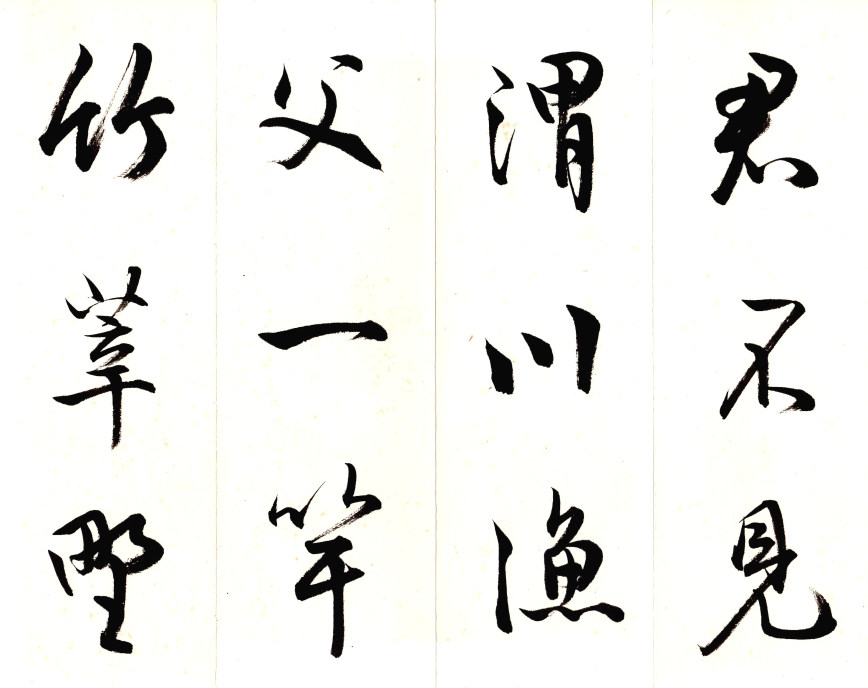 君不見
渭川漁
父一竿
竹莘野